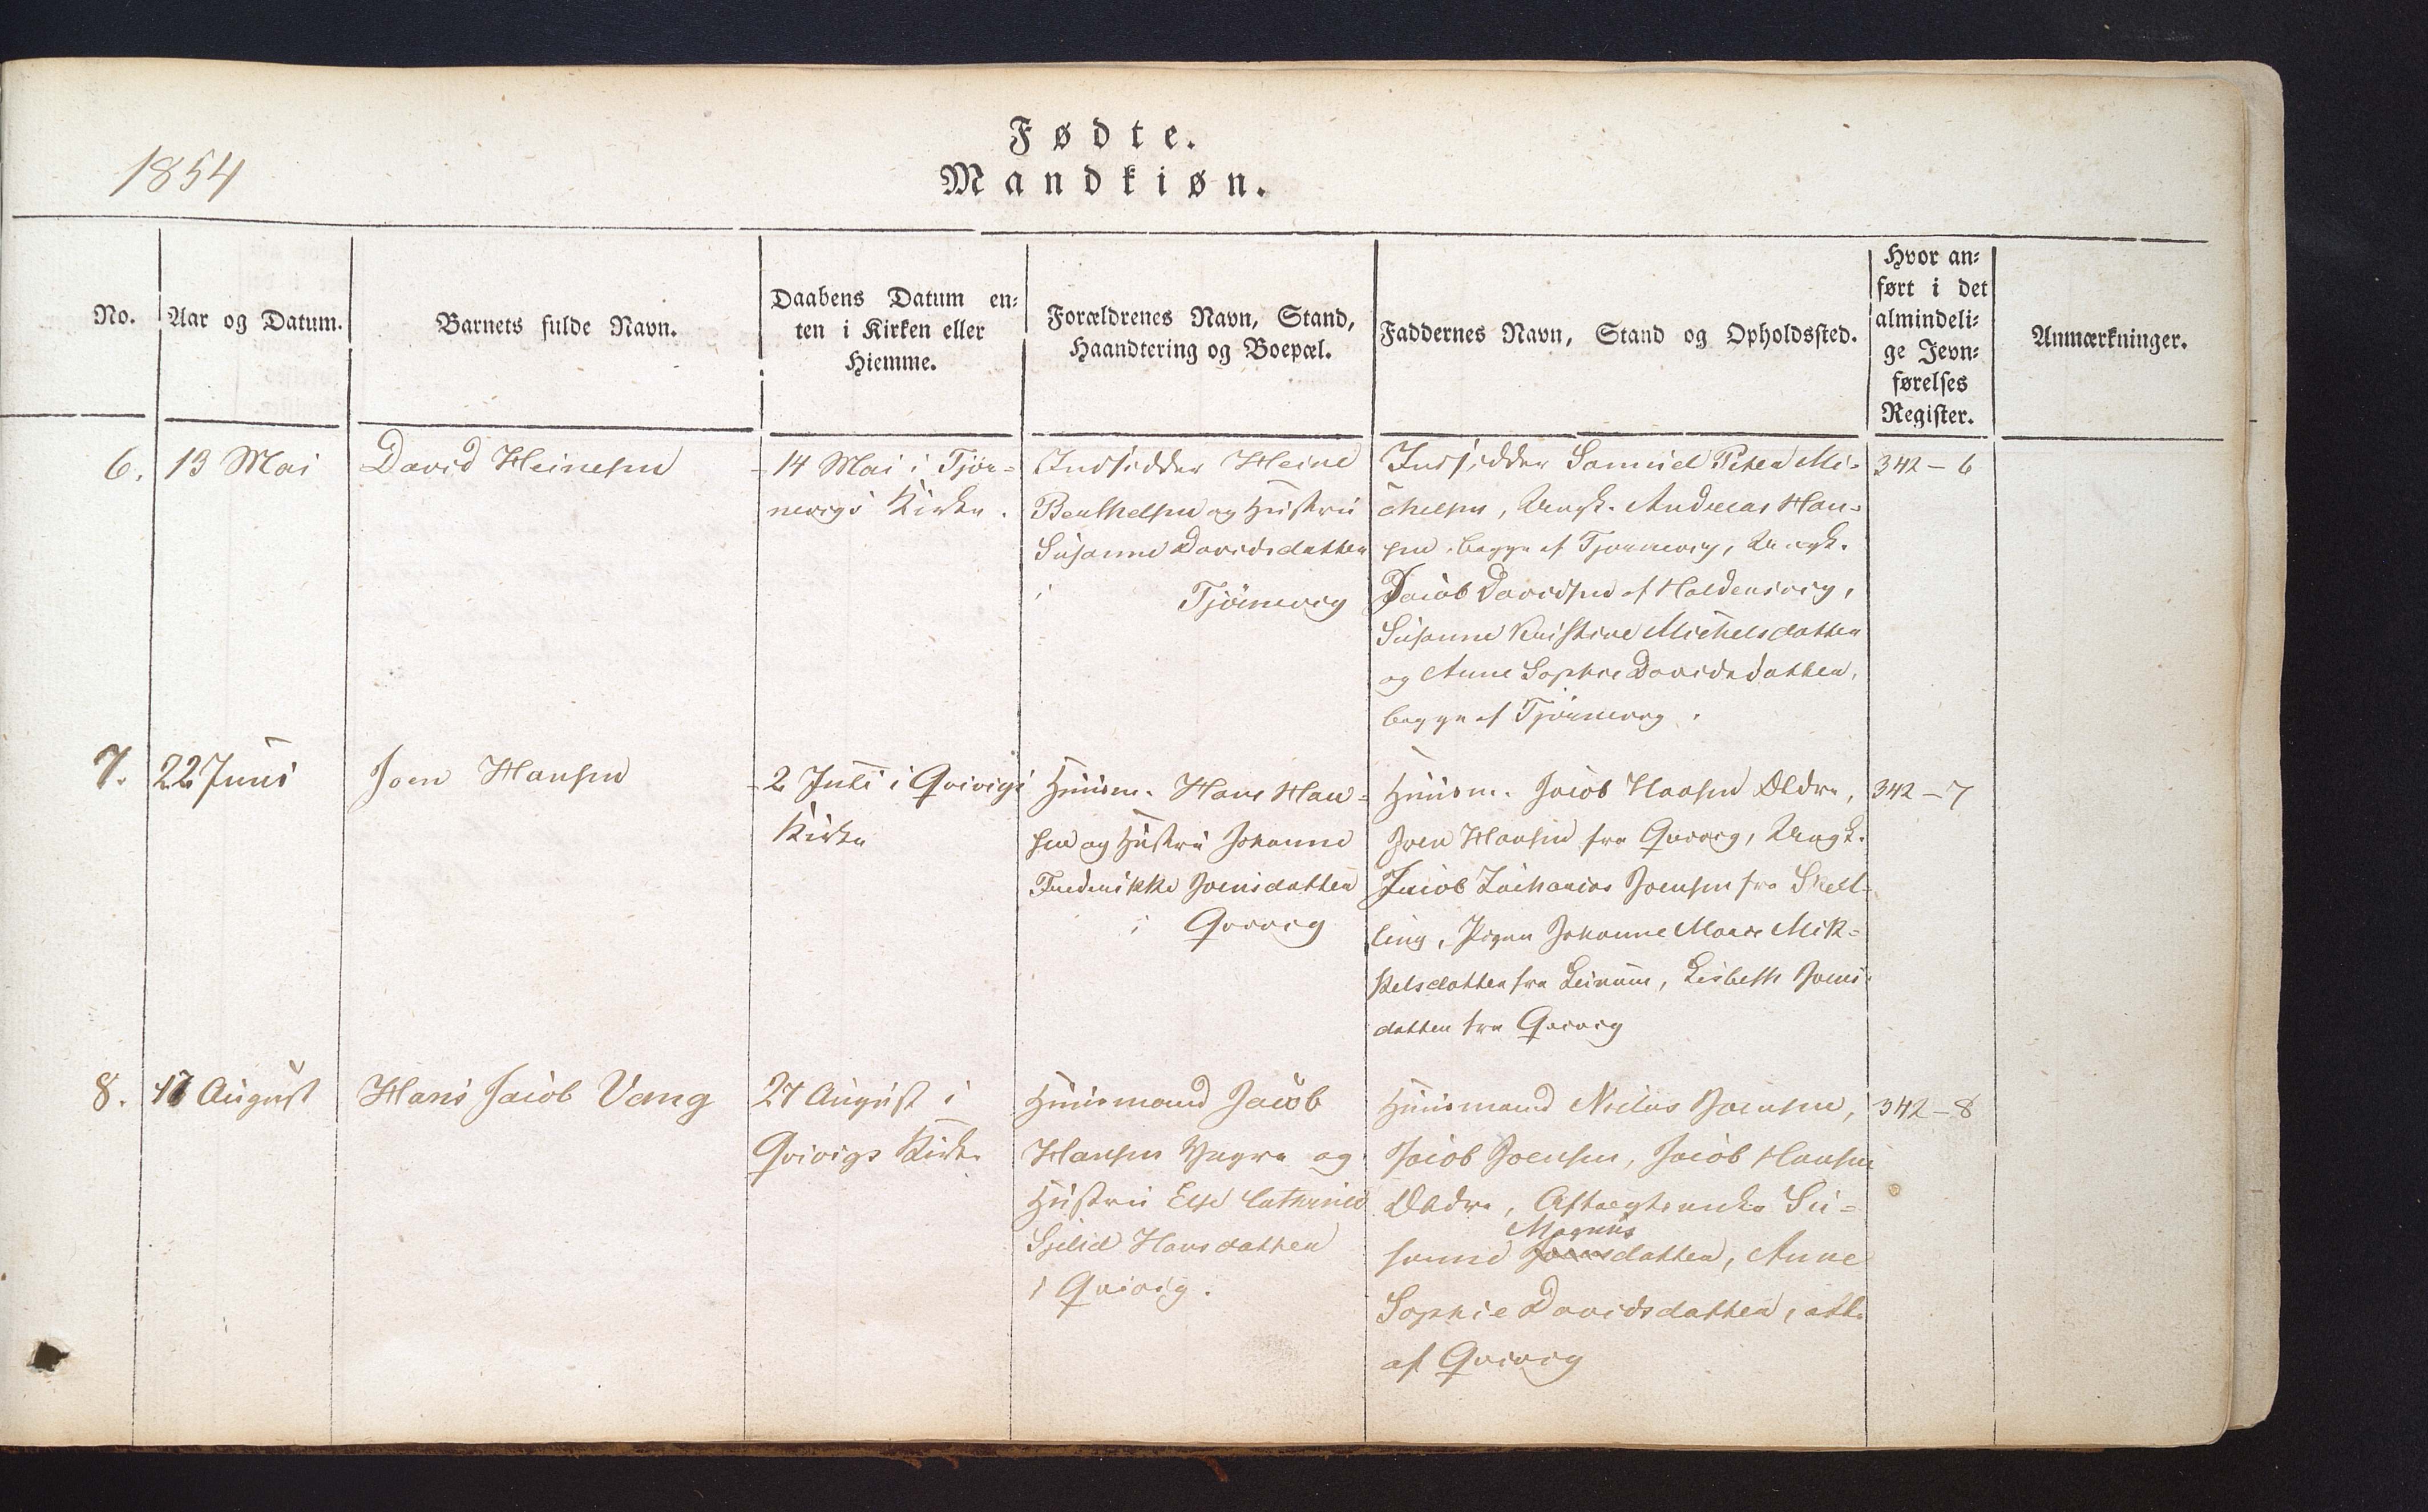 1854
Fødte.
Mandkiøn.
No.
Aar og Datum.
Barnets fulde Navn.
Daabens Datum en-
ten i Kirken eller
Hiemme.
Forældrenes Navn, Stand,
Haandtering og Boepæl.
Faddernes Navn, Stand og Opholdssted.
Hvor an-
ført i det
almindeli-
ge Jevn-
førelses
Register.
Anmærkninger.
6.
13 Mai
David Heinesen
14 Mai i Tjør-
nevigs Kirke.
Indsidder Heine
Berthelsen og Hustru
Susanne Davidsdatter
i Tjörnevig
Indsidder Samuel Peter Mi-
chelsen, Ungk. Andreas Han-
sen, begge af Tjörnevig, Ungk.
Jacob Davidsen af Haldersvig,
Susanne Kristine Michelsdatter
og Anne Sophie Davidsdatter,
begge af Tjörnevig.
342 - 6
7.
22 Juni
Joen Hansen
2 Juli i Qvivigs
Kirke
Huusm. Hans Han-
sen og Hustru Johanne
Frederikke Joensdatter
i Qvivig
Huusm. Jacob Hansen Ældre,
Joen Hansen fra Qvivig, Ungk.
Jacob Zacharias Joensen fra Skell-
ling, Pigen Johanne Marie Mik-
kelsdatter fra Leinum, Lisbeth Joens-
datter fra Qvivig
342 - 7
8.
17 August
Hans Jacob Vang
27 August i
Qvivigs Kirke
Huusmand Jacob
Hansen Yngre og
Hustru Else Cathrine
Hansdatter
i Qvivig.
Huusmand Niclas Joensen,
Jacob Joensen, Jacob Hansen
Ældre, Aftægtsenke Su-
Magnus
sanne Joensdatter, Anne
Sophie Davidsdatter, alle
af Qvivig
342 - 8